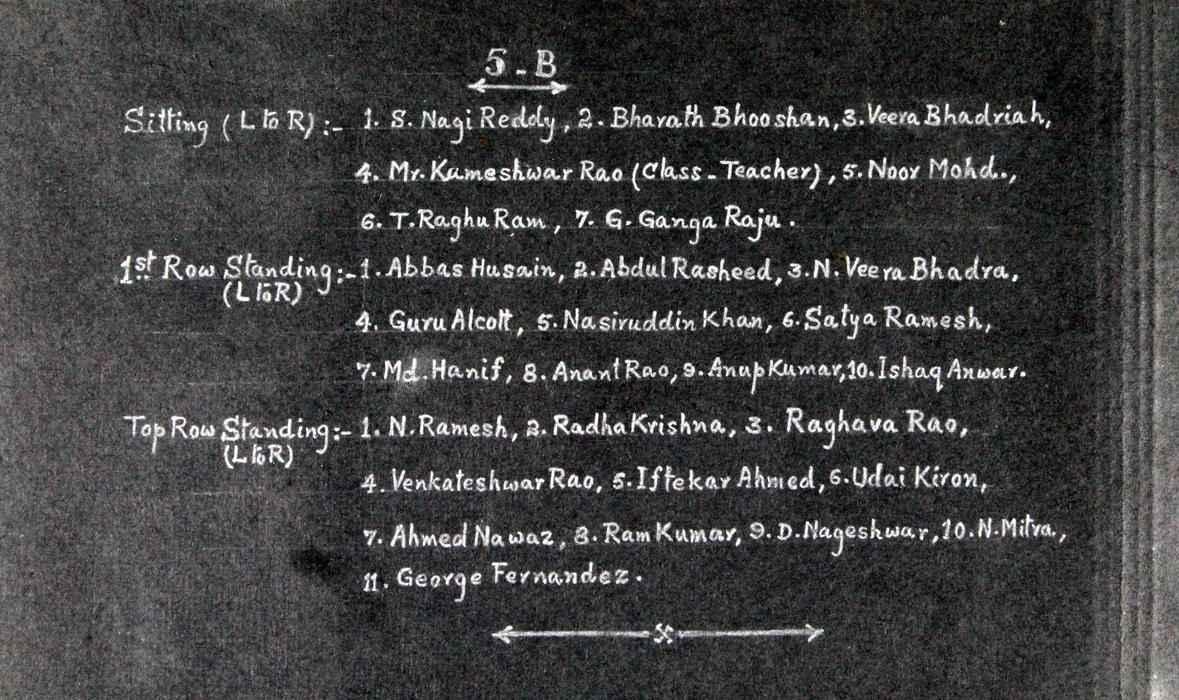 5 - B
Sitting (L to R) :- 1. S. Nagi Reddy, 2. Bharath Bhooshan, 3. Veera Bhadriah,
4. Mr. Kameshwar Rao (Class - Teacher), 5. Noor Mohd.,
6. T. Raghu Ram, 7. G. Ganga Raju.
1st Row Standing :- 1. Abbas Husain, 2. Abdul Rasheed, 3. N. Veera Bhadra,
(L to R)
4. Guru Alcott, 5. Nasiruddin Khan, 6. Satya Ramesh,
7. Md. Hanif, 8. Anant Rao, 9. Anup Kumar, 10. Ishaq Anwar.
Top Row Standing :- 1. N. Ramesh, 2. Radha Krishna, 3. Raghava Rao,
(L to R)
4. Venkateshwar Rao, 5. Iftekar Ahmed, 6. Udai Kiron,
7. Ahmed Nawaz, 8. Ram Kumar, 9. D. Nageshwar, 10. N. Mitra.,
11. George Fernandez.